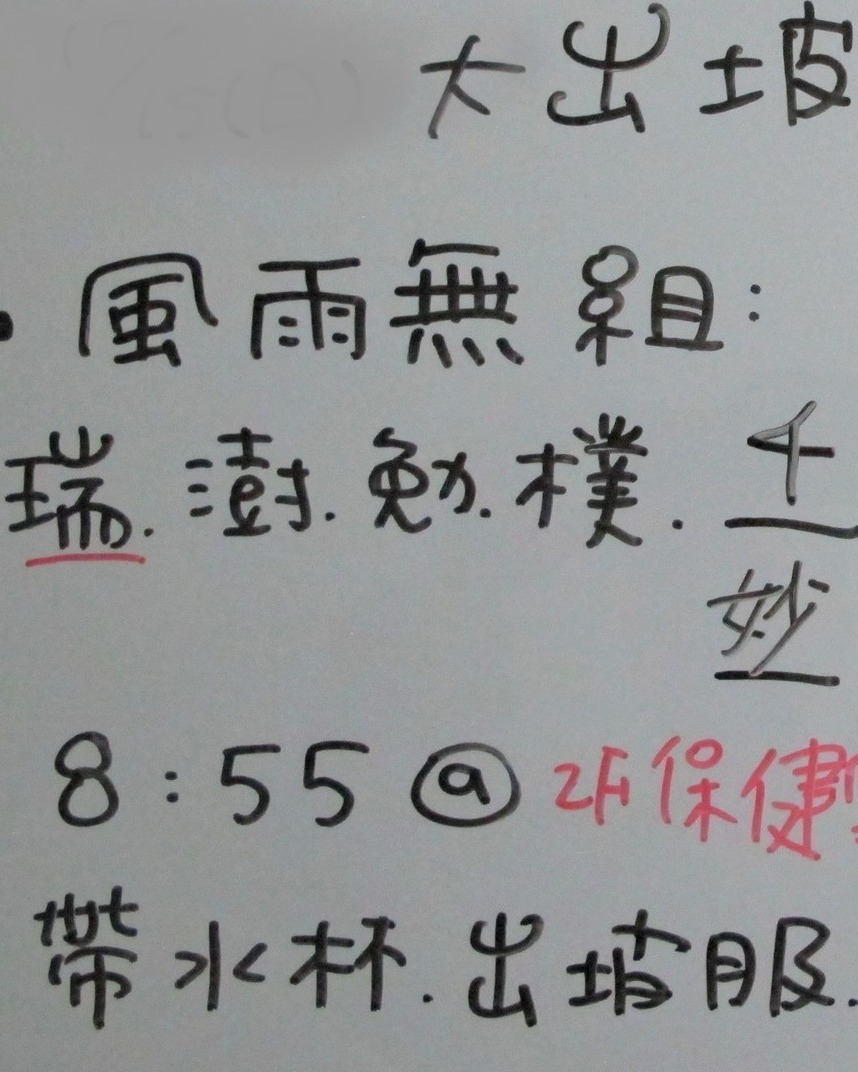 大出坡
・風雨無組:
瑞.澍.勉.樸.千
妙
8:55@2F保健
帶水杯.出坡服.